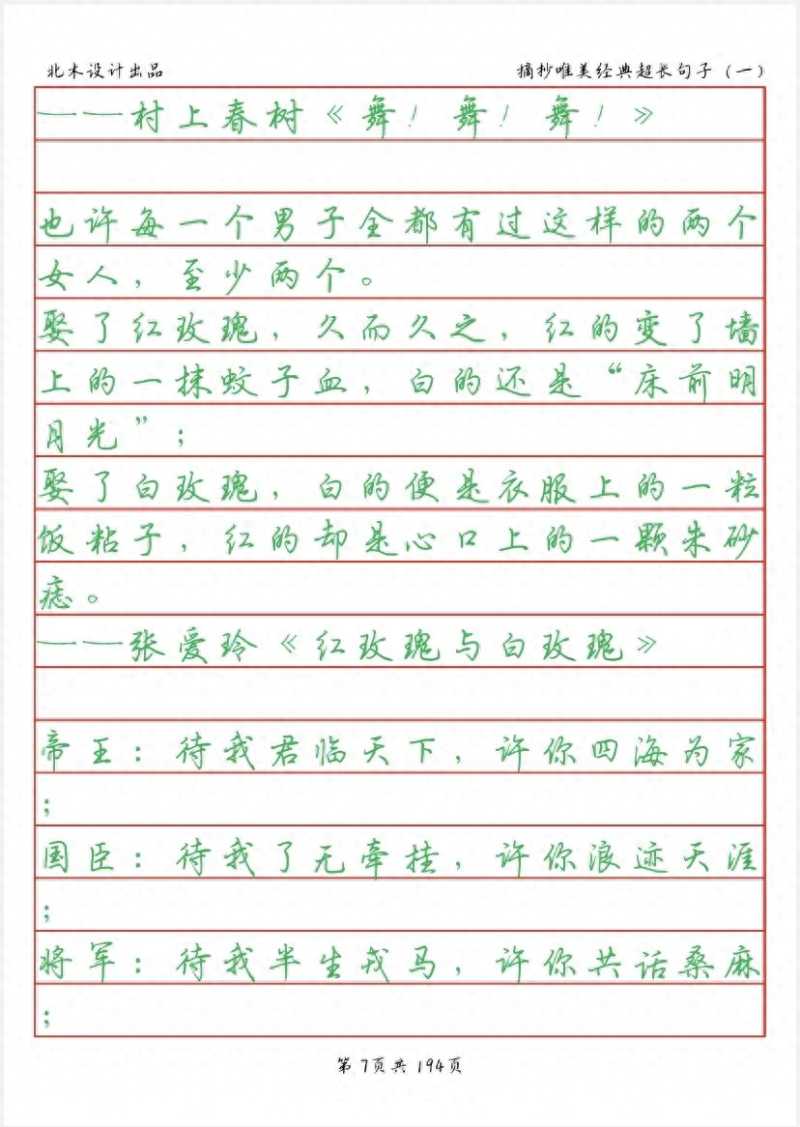 北木设计出品
摘抄唯美经典超长句子（一）
——村上春树《舞！舞！舞！》
也许每一个男子全都有过这样的两个
女人，至少两个。
娶了红玫瑰，久而久之，红的变了墙
上的一抹蚊子血，白的还是“床前明
月光”；
娶了白玫瑰，白的便是衣服上的一粒
饭粘子，红的却是心口上的一颗朱砂
痣。
——张爱玲《红玫瑰与白玫瑰》
帝王：待我君临天下，许你四海为家
；
国臣：待我了无牵挂，许你浪迹天涯
；
将军：待我半生戎马，许你共话桑麻
；
第7页共194页